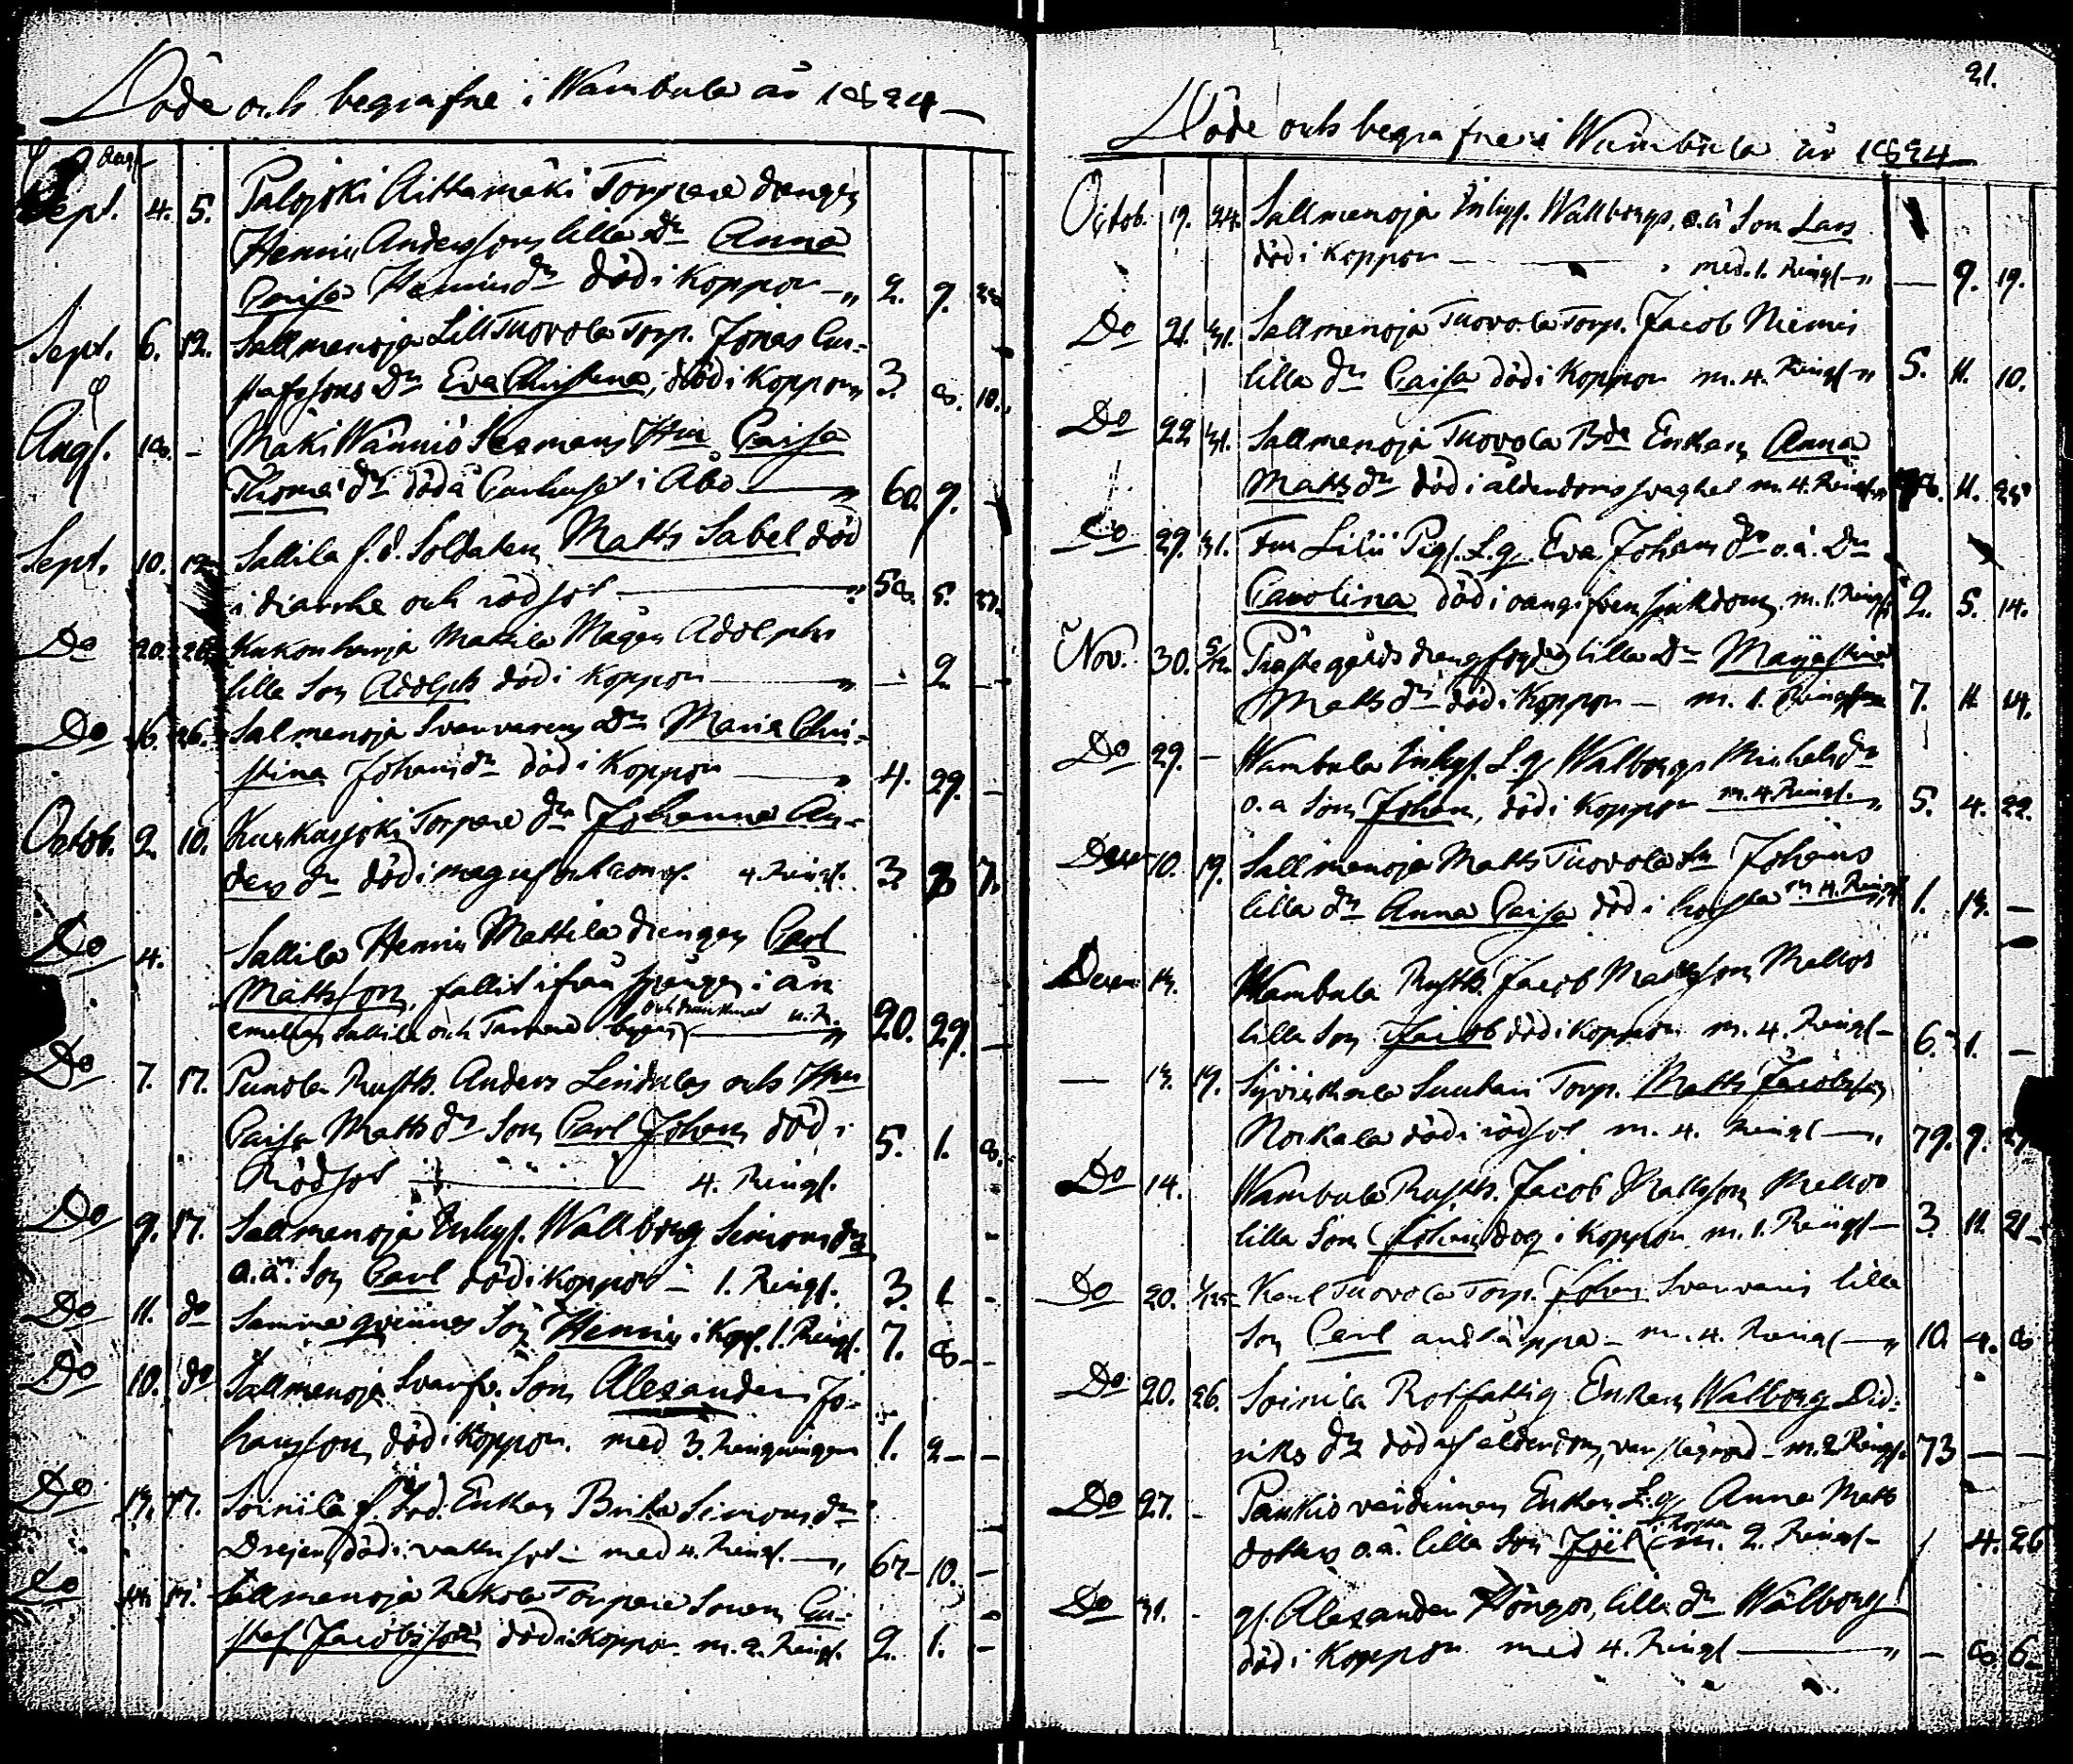 Döde och begrafne i Wambula år 1824
Augs.
Sept. 4. 5. Palojoki Aittamäki Torpare drengen
Henric Anderssons lilla Dr Anna
Caisa Henricsdr död i Koppor 2. 9.
Sept. 6. 12. Sallmenoja Lill Tuovola Torp. Jonas Gu-
stafssons Dr Eva Christina, död i Koppor 3. 8. 10.
Augs. 18. - Mäki Wänniö Sexmans Hu Caisa
Thomædr död å Curhuset i Åbo 60. 9. -
Sept. 10. 12. Sallila f. d. Soldaten Matts Sabel död
i diarrhe och rödsot 58. 5.
Do 20. 26. Kukonharja Mattila Mågen Adolphs
lilla Son Adolph död i Koppor - 2. -
Do 16. 26. Salmenoja Svenvarens Dr Maria Chri-
stina Johansdr död i Koppor 4. 29. -
Octob. 2. 10. Kurkasjoki Torpare dr Johanna An-
dersdr död i 4. Ringl. 3. 7.
Do 4. Sallila Henric Mattila drengen Carl
Mattsson, fallit ifrån spången i ån
emellan Sallila och byar och drunknat 20. 29. -
Do 7. 17. Punola Rusth. Anders Lindulas och Hu
Caisa Mattsdr Son Carl Johan död i 5. 1. 8.
Rödsot 4. Ringl.
Do 9. 17. Sallmenoja Inhys. Wallborg Simonsdrs
o.ä. Son Carl död i Koppor - 1. Ringl. 3. 1. -
Do 11. do Samma qvinnas Son Henric i Kopp. 1. Ringl. 7. 8. -
Do 10. do Sallmenoja Svenv. Son Alexander Jo-
hansson, död i Koppor. med 3. Ringningar 1. 2 - -
Do 13. 17. Soinila f. Enkan Brita Simonsdr
Drejers, död i vattusot - med 4. Ringl. 67 - 10. -
Do 14. 17. Sallmenoja Rekola Torpare Sonen Gu-
staf Jacobsson död i Koppor m. 2. Ringl. 2. 1. -
31.
Döde och begrafne i Wambula år 1824
Octob. 19. 24. Sallmenoja Inhys. Wallborgs, o.ä Son Lars
död i Koppor med. 1. Ringl. - 9. 19.
Do 21. 31. Sallmenoja Tuovola Torp. Jacob Niemis
lilla dr Caisa död i Koppor m. 4. Ringl. 5. 11. 10.
Do 22 31. Sallmenoja Tuovola Bde Enkan Anna
Mattsdr död i ålderdoms svaghet m. 4. Ringl. 11.
Do 29. 31. Liliï Pigs. L.q. Eva Johansdr o.ä. Dr
Carolina död i oangifven sjukdom. m. 1. Ringl. 2. 5. 14.
Nov. 30. 5/12 Prästegårds drengfogdens lilla Dr Maja Stina
Mattsdr död i Koppor - m. 1. Ringl. 7. 11 14.
Do 29. - Wambula Inhys. L.q. Walborgs Michelsdr
o.ä Son Johan, död i Koppor m. 4 Ringl. 5. 4. 22.
Decem 10. 19. Sallmenoja Matts Tuovola Johans
lilla dr Anna Caisa död i hosta m. 4. Ringl. 1. 13. -
Decem 13. Wambula Rusth. Jacob Mattsson Mellos
lilla Son Jacob död i Koppor m. 4. Ringl - 6. 1. -
- 13. 19. Suutari Torp. Matts Jacobsson
Norkala död i rödsot m. 4. Ringl 79. 9.
Do 14. Wambula Rusth. Jacob Mattsson Mellos
lilla Son Johan dog i Koppor m. 1. Ringl - 3. 11. 21
Do 20. Tuovola Torp. Johan Svenvaris lilla
Son Carl andtäppa - m. 4. Ringl 10. 4. 8
Do 20. 26. Soinila Rotfattig Enkan Walborg Did-
riksdr död af ålderdom, var m. 2. Ringl. 73 - -
Do 27. - Pankio värdinnan Enkan L.q Anna Matts
dotters o.ä. lilla Son Joël i hosta m. 2. Ringl - 1 4. 26
Do 31. - gl. Alexander Höngos, lilla dr Wälborg
död i Koppor med 4. Ringl - 8 6